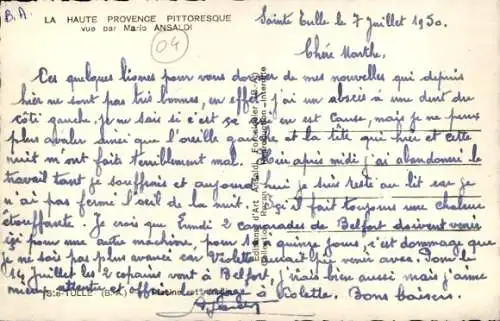 B.A.
LA HAUTE PROVENCE PITTORESQUE
vue par Mario ANSALDI
04
Sainte Tulle le 7 Juillet 1950.
Chère Marthe,
Ces quelques lignes pour vous donner de mes nouvelles qui depuis
hier ne sont pas très bonnes, en effet j'ai un abscès à une dent du
côté gauche, je ne sais si c'est se en est cause, mais je ne peux
plus avaler ainsi que l'oreille gauche et la tête qui et cette
nuit m'ont fait terriblement mal. Hier après midi j'ai abandonné le
travail tant je souffrais et aujourd'hui je suis resté au lit car je
n'ai pas fermé l'œil de la nuit. Ici il fait toujours une chaleur
étouffante. Je crois que Lundi 2 camarades de Belfort doivent venir
ici pour une autre machine, pour quinze jours, c'est dommage que
je ne sois pas plus avancé car Violette aurait pu venir avec. Pour le
14 Juillet les 2 copains vont à Belfort, j'irais bien aussi mais j'aime
mieux attendre et offrir le voyage à Violette. Bons baisers.
Ste-TULLE (B.-A.)
Editions d'Art Ansaldi,
Reproduction Interdite